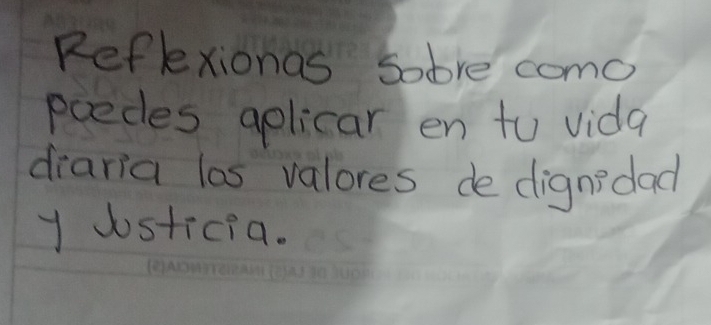 Reflexionas sobre como
puedes aplicar en tu vida
diaria los valores de dignidad
y Justicia.